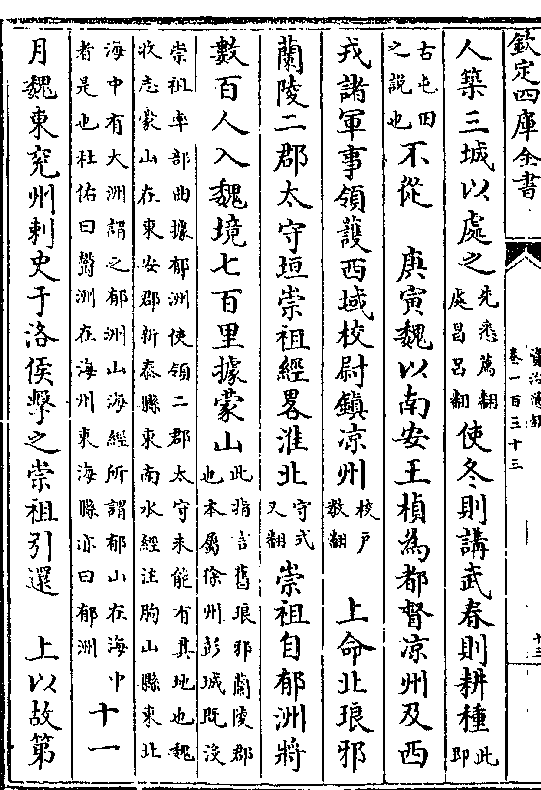 欽定四庫全書
資治通鑑
卷一百三十三
十三
人築三城以處之先悉薦翻處昌呂翻使冬則講武春則耕種此即
古屯田之說也不從 庚寅魏以南安王楨為都督涼州及西
戎諸軍事領護西域校尉鎮涼州校戶敎翻 上命北琅邪
蘭陵二郡太守垣崇祖經畧淮北守式又翻崇祖自郁洲將
數百人入魏境七百里據蒙山此指言舊琅邪蘭陵郡也本屬徐州彭城既沒
崇祖率部曲據郁洲使領二郡太守未能有其地也魏收志蒙山在東安郡新泰縣東南水經注朐山縣東北
海中有大洲謂之郁洲山海經所謂郁山在海中者是也杜佑曰鬱洲在海州東海縣亦曰郁洲十一
月魏東兗州刺史于洛侯擊之崇祖引還 上以故第